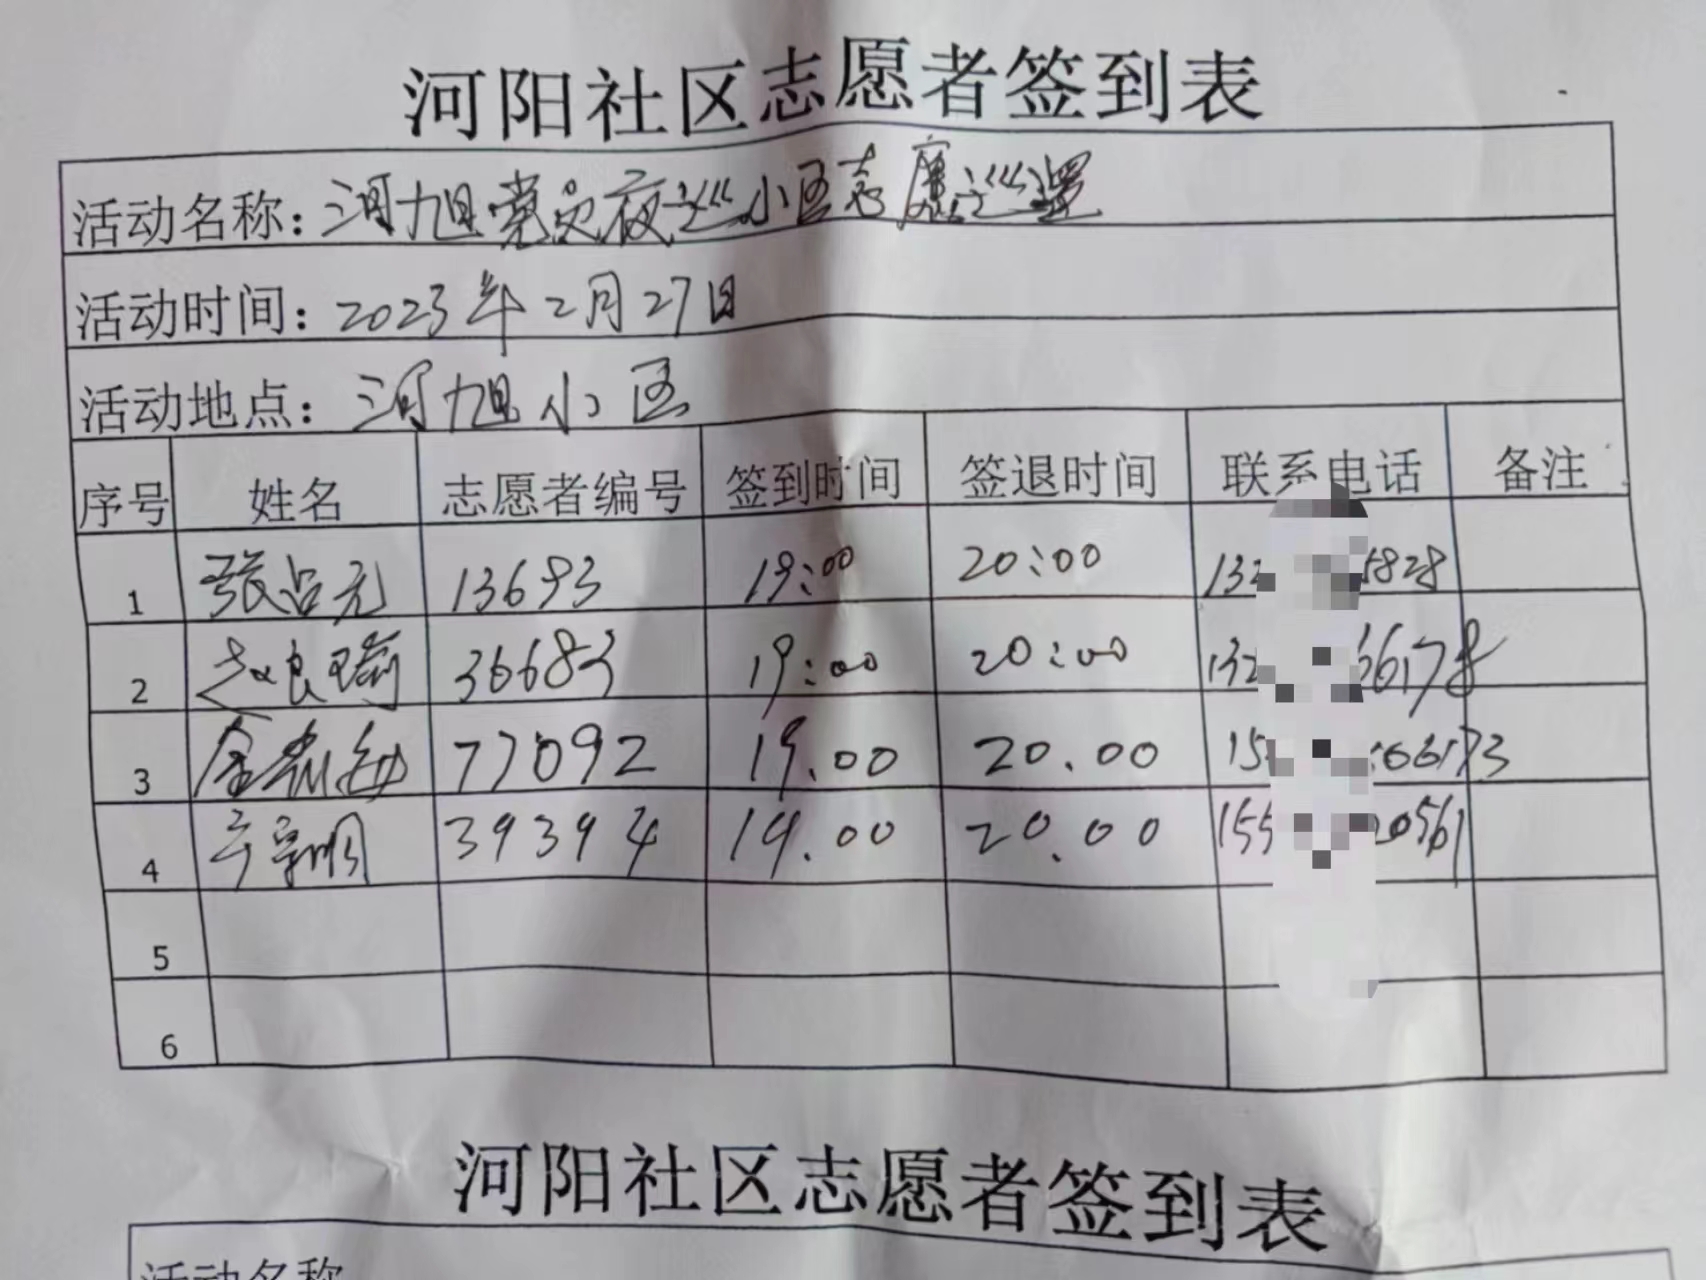 河阳社区志愿者签到表
活动名称：河旭党员夜巡小区志愿巡逻
活动时间：2023年2月27日
活动地点：河旭小区
序号 姓名 志愿者编号 签到时间 签退时间 联系电话 备注
1 张占元 13693 19:00 20:00 132 5828
2 赵良瑜 36683 19:00 20:00 132 66178
3 金 77092 19.00 20.00 15 66173
4 39394 19.00 20.00 155 20561
5
6
河阳社区志愿者签到表
活动名称